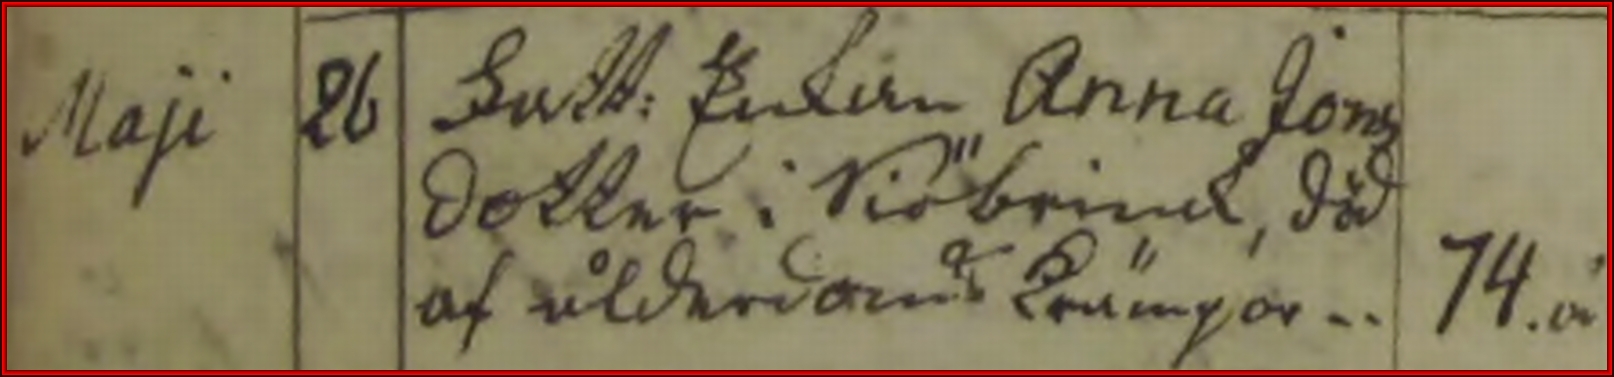 Maji 26 Fatt: Enkan Anna Jons
dotter i Siöbrinck, död
af ålderdoms krämpor -- 74. å